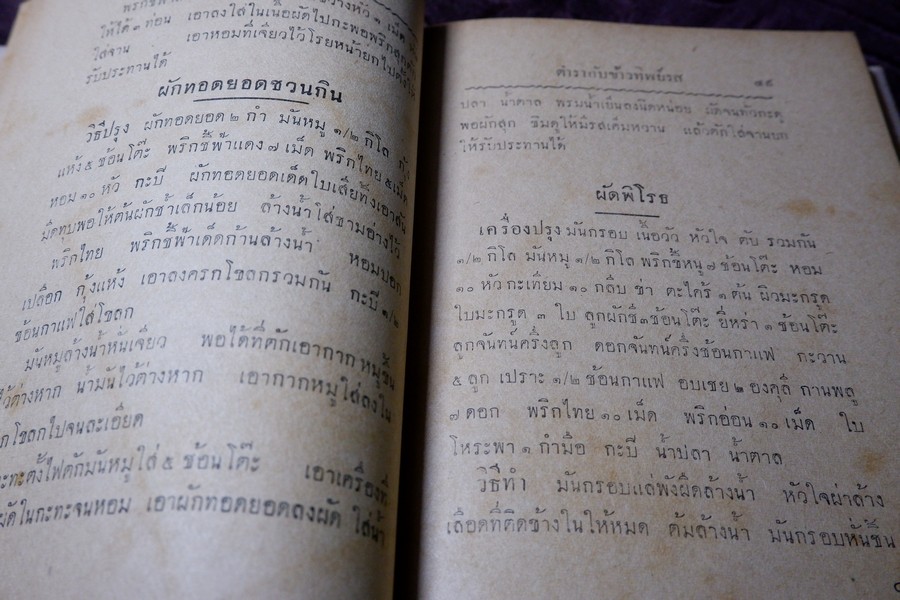 ให้ได้ ๓ ท่อน เอาลงใส่ในเนื้อผัดไปกะพอพริกสุก
ใส่จาน เอาหอมที่เจียวไว้โรยหน้ายกไป
รับประทานได้
ผักทอดยอดชวนกิน
วิธีปรุง ผักทอดยอด ๒ กำ มันหมู ๑/๒ กิโล กุ้ง
แห้ง ๕ ช้อนโต๊ะ พริกชี้ฟ้าแดง ๗ เม็ด พริกไทย ๕ เม็ด
หอม ๑๐ หัว กะปิ ผักทอดยอดเด็ดใบเสียทิ้งเอาสัน
มีดทุบพอให้ต้นผักช้ำเล็กน้อย ล้างน้ำใส่ชามอ่างไว้
พริกไทย พริกชี้ฟ้าเด็ดก้านล้างน้ำ หอมปอก
เปลือก กุ้งแห้ง เอาลงครกโขลกรวมกัน กะปิ ๑/๒
ช้อนกาแฟใส่โขลก
มันหมูล้างน้ำหั่นเจียว พอได้ที่ตักเอากากหมูขึ้น
ไว้ต่างหาก น้ำมันไว้ต่างหาก เอากากหมูใส่ลงใน
โขลกไปจนละเอียด
กะทะตั้งไฟตักมันหมูใส่ ๕ ช้อนโต๊ะ เอาเครื่องที่
ผัดในกะทะจนหอม เอาผักทอดยอดลงผัด ใส่น้ำ
ตำรากับข้าวทิพย์รส ๑๕
ปลา น้ำตาล พรมน้ำเย็นลงนิดหน่อย ผัดจนทั่วกะดู
พอผักสุก ชิมดูให้มีรสเค็มหวาน แล้วตักใส่จานยก
ให้รับประทานได้
ผัดพิโรธ
เครื่องปรุง มันกรอบ เนื้อวัว หัวใจ ตับ รวมกัน
๑/๒ กิโล มันหมู ๑/๒ กิโล พริกขี้หนู ๗ ช้อนโต๊ะ หอม
๑๐ หัว กะเทียม ๑๐ กลีบ ข่า ตะไคร้ ๑ ต้น ผิวมะกรูด
ใบมะกรูด ๓ ใบ ลูกผักชี ๓ ช้อนโต๊ะ ยี่หร่า ๑ ช้อนโต๊ะ
ลูกจันทน์ครึ่งลูก ดอกจันทน์ครึ่งช้อนกาแฟ กะวาน
๕ ลูก เปราะ ๑/๒ ช้อนกาแฟ อบเชย ๒ องคุลี กานพลู
๗ ดอก พริกไทย ๑๐ เม็ด พริกอ่อน ๑๐ เม็ด ใบ
โหระพา ๑ กำมือ กะปิ น้ำปลา น้ำตาล
วิธีทำ มันกรอบแล่พังผืดล้างน้ำ หัวใจผ่าล้าง
เลือดที่ติดข้างในให้หมด ต้มล้างน้ำ มันกรอบหั่นชิ้น